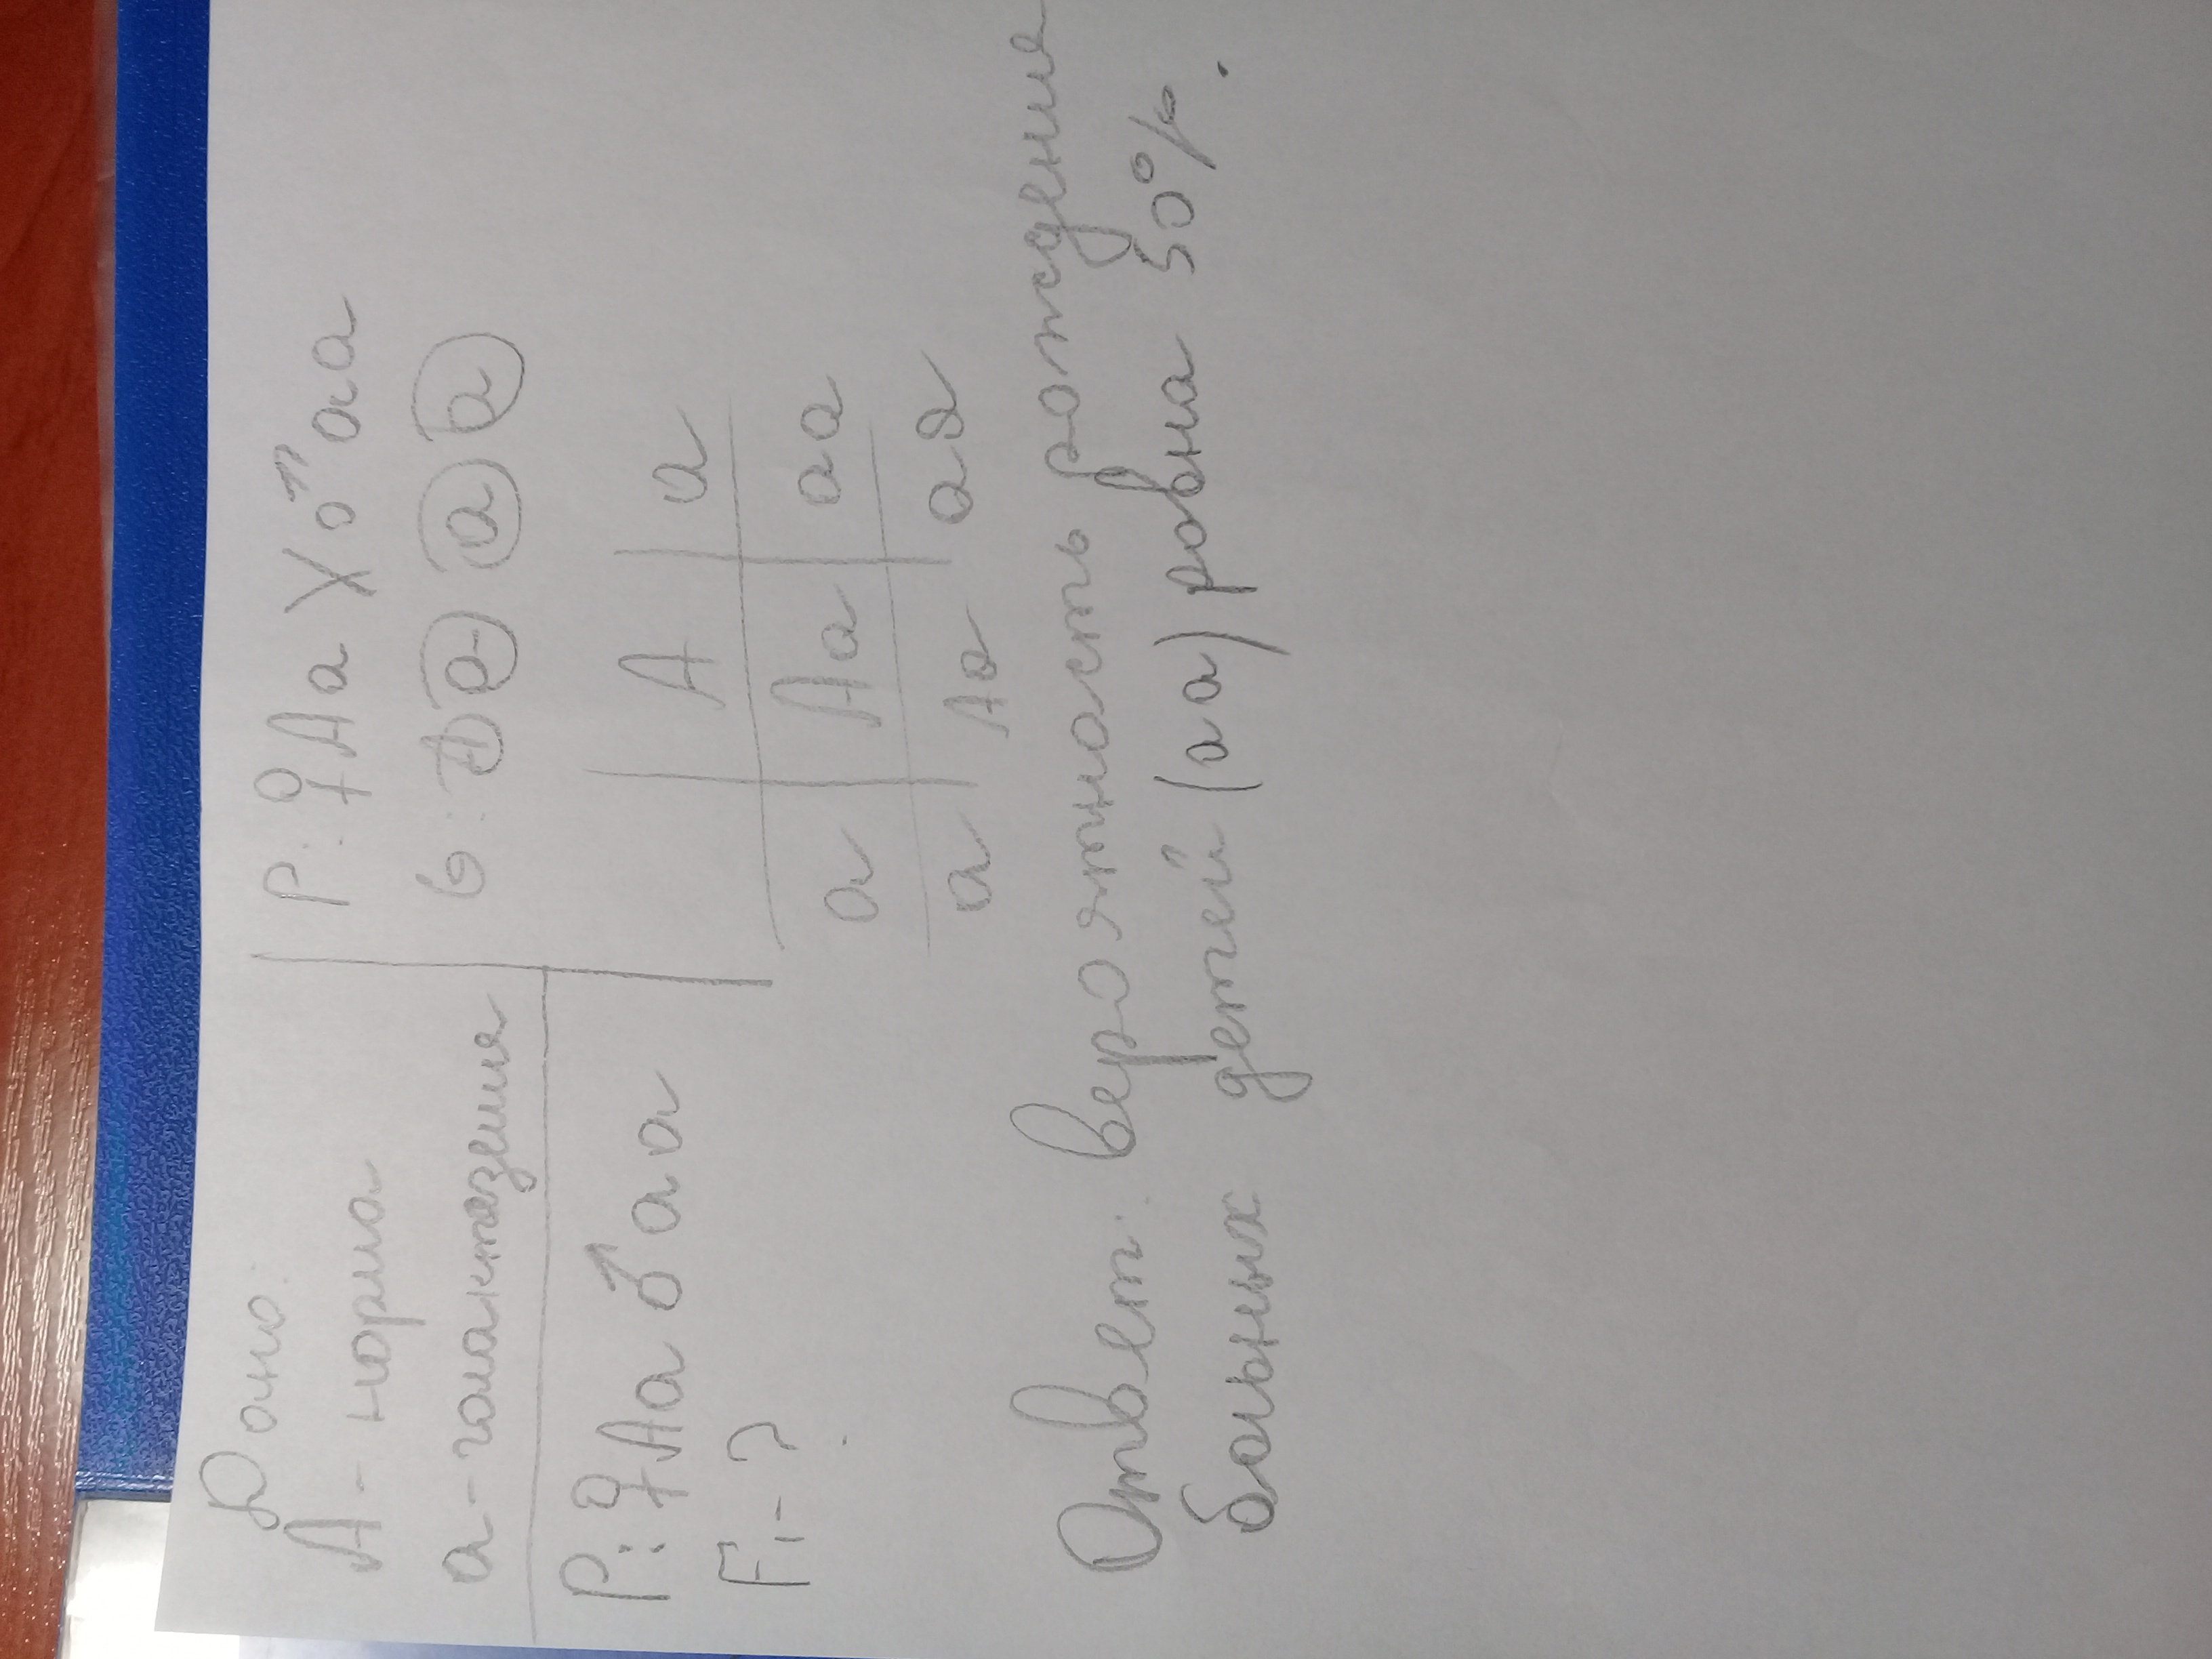 Дано:
А - норма
а - галактоземия
Р: ♀Аа ♂аа
F₁ - ?
Р: ♀Аа Х ♂аа
G: А а а а
А а
а Аа аа
а Аа аа
Ответ: вероятность рождения
больных детей (аа) равна 50%.